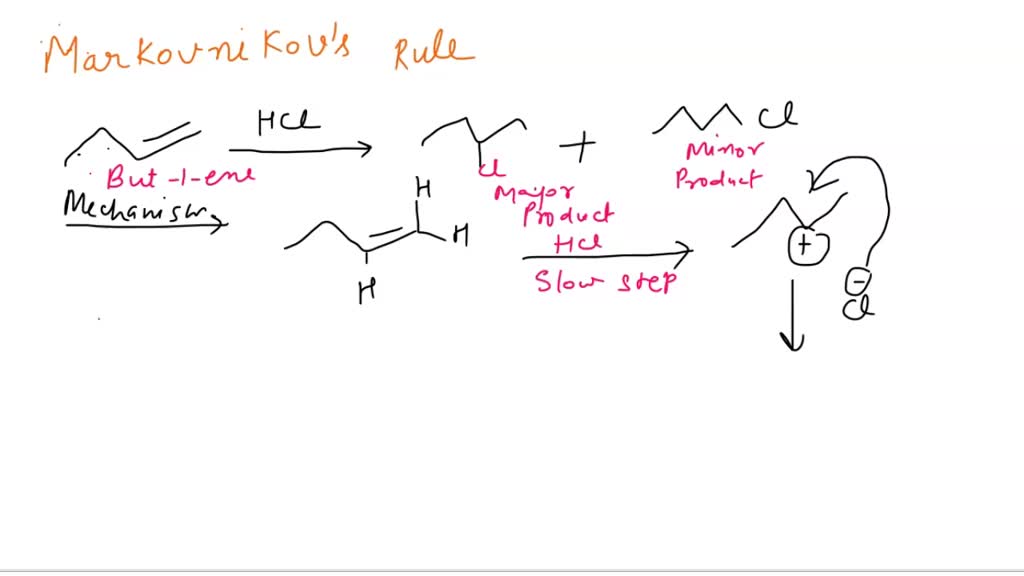 Markovnikov's Rule
HCl
Cl
+
Cl
But-1-ene
Major
Product
Minor
Product
Mechanism
H
H
H
HCl
Slow step
+
-
Cl